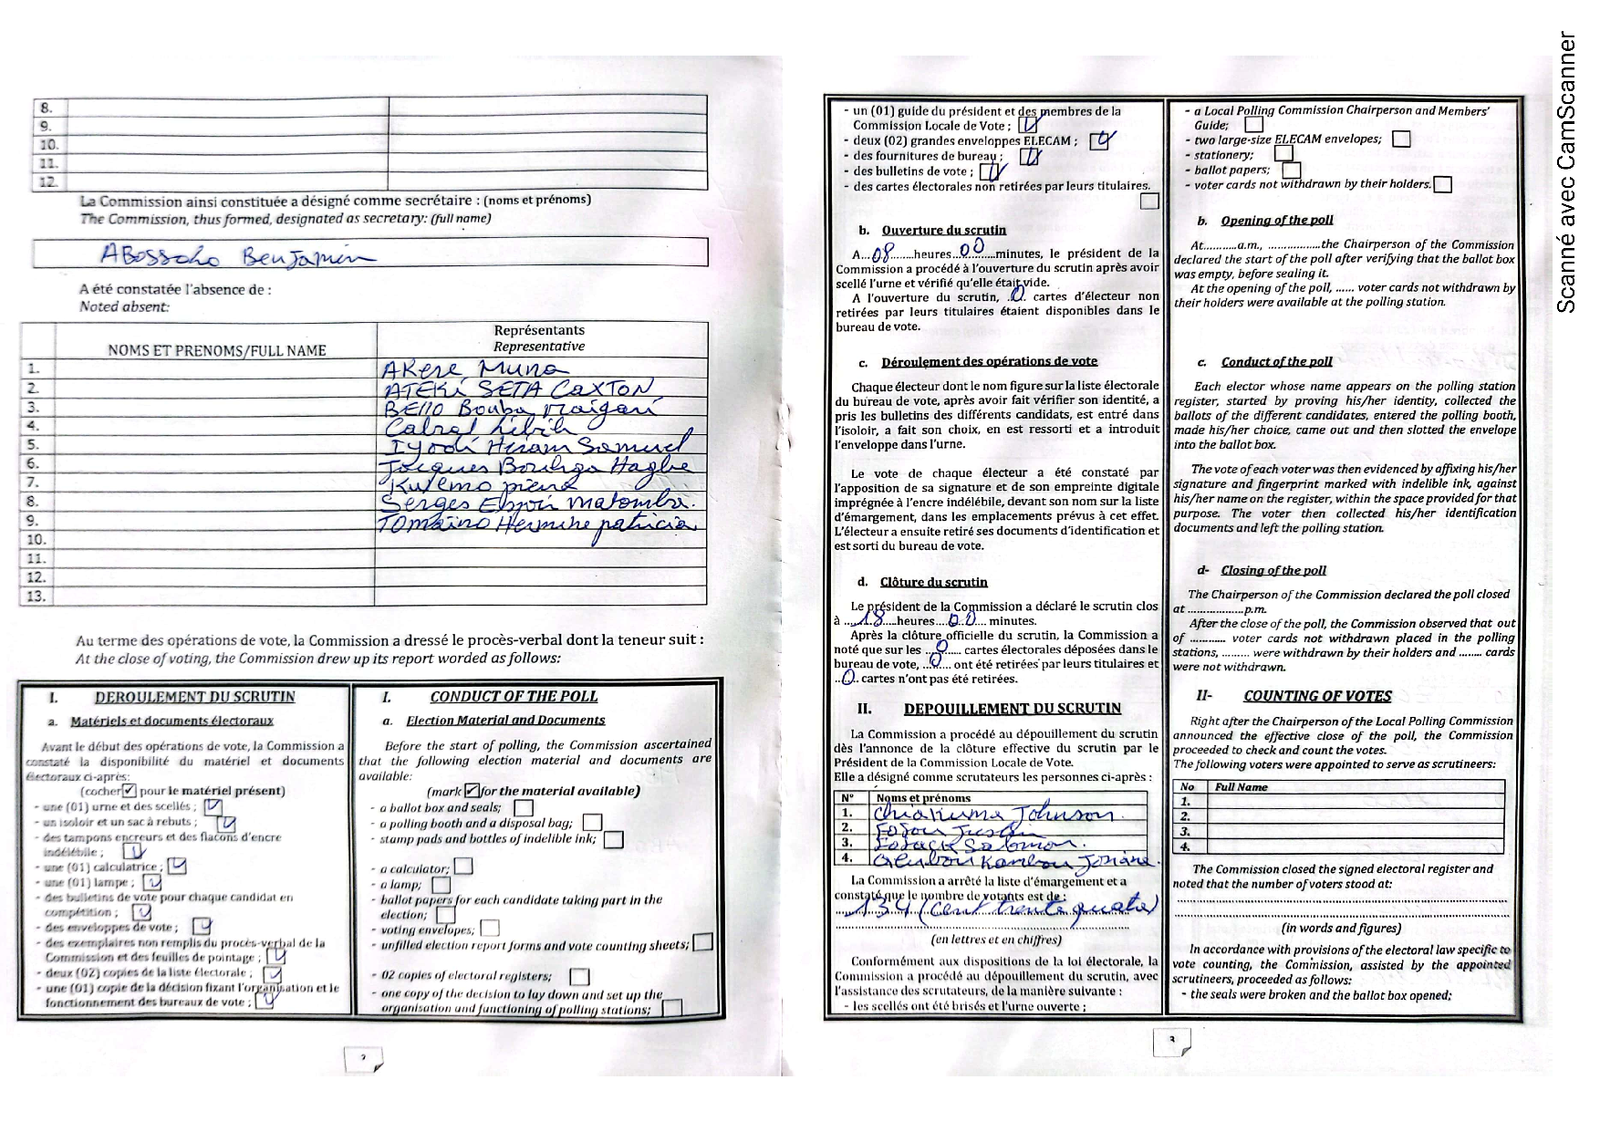 8.
9.
10.
11.
12.
La Commission ainsi constituée a désigné comme secrétaire : (noms et prénoms)
The Commission, thus formed, designated as secretary: (full name)
ABossolo Benjamin
A été constatée l'absence de :
Noted absent:
NOMS ET PRENOMS/FULL NAME
Représentants
Representative
1. AKere Muna
2. ATEKI SETA CaXTON
3. BEllO Bouba Maigari
4. Cabral Libih
5. Iyodi Hiram Samuel
6. Jacques Bougha Hagbe
7. Kwemo pierre
8. Serges Espoir Matomba.
9. TOMaïno Hermine patricia
10.
11.
12.
13.
Au terme des opérations de vote, la Commission a dressé le procès-verbal dont la teneur suit :
At the close of voting, the Commission drew up its report worded as follows:
I. DEROULEMENT DU SCRUTIN
a. Matériels et documents électoraux
Avant le début des opérations de vote, la Commission a
constaté la disponibilité du matériel et documents
électoraux ci-après:
(cocher ✓ pour le matériel présent)
- une (01) urne et des scellés ;
- un isoloir et un sac à rebuts ;
- des tampons encreurs et des flacons d'encre
indélébile ;
- une (01) calculatrice ;
- une (01) lampe ;
- des bulletins de vote pour chaque candidat en
compétition ;
- des enveloppes de vote ;
- des exemplaires non remplis du procès-verbal de la
Commission et des feuilles de pointage ;
- deux (02) copies de la liste électorale ;
- une (01) copie de la décision fixant l'organisation et le
fonctionnement des bureaux de vote ;
I. CONDUCT OF THE POLL
a. Election Material and Documents
Before the start of polling, the Commission ascertained
that the following election material and documents are
available:
(mark ✓ for the material available)
- a ballot box and seals;
- a polling booth and a disposal bag;
- stamp pads and bottles of indelible ink;
- a calculator;
- a lamp;
- ballot papers for each candidate taking part in the
election;
- voting envelopes;
- unfilled election report forms and vote counting sheets;
- 02 copies of electoral registers;
- one copy of the decision to lay down and set up the
organisation and functioning of polling stations;
2
- un (01) guide du président et des membres de la
Commission Locale de Vote ;
- deux (02) grandes enveloppes ELECAM ;
- des fournitures de bureau ;
- des bulletins de vote ;
- des cartes électorales non retirées par leurs titulaires.
b. Ouverture du scrutin
A...08......heures...00...minutes, le président de la
Commission a procédé à l'ouverture du scrutin après avoir
scellé l'urne et vérifié qu'elle était vide.
A l'ouverture du scrutin, .0. cartes d'électeur non
retirées par leurs titulaires étaient disponibles dans le
bureau de vote.
c. Déroulement des opérations de vote
Chaque électeur dont le nom figure sur la liste électorale
du bureau de vote, après avoir fait vérifier son identité, a
pris les bulletins des différents candidats, est entré dans
l'isoloir, a fait son choix, en est ressorti et a introduit
l'enveloppe dans l'urne.
Le vote de chaque électeur a été constaté par
l'apposition de sa signature et de son empreinte digitale
imprégnée à l'encre indélébile, devant son nom sur la liste
d'émargement, dans les emplacements prévus à cet effet.
L'électeur a ensuite retiré ses documents d'identification et
est sorti du bureau de vote.
d. Clôture du scrutin
Le président de la Commission a déclaré le scrutin clos
à ...18.....heures....00.... minutes.
Après la clôture officielle du scrutin, la Commission a
noté que sur les ..0.... cartes électorales déposées dans le
bureau de vote, ..0... ont été retirées par leurs titulaires et
..0.. cartes n'ont pas été retirées.
II. DEPOUILLEMENT DU SCRUTIN
La Commission a procédé au dépouillement du scrutin
dès l'annonce de la clôture effective du scrutin par le
Président de la Commission Locale de Vote.
Elle a désigné comme scrutateurs les personnes ci-après :
N° Noms et prénoms
1. Johnson.
2.
3. Salomon.
4. Kambou Josiane.
La Commission a arrêté la liste d'émargement et a
constaté que le nombre de votants est de :
134 (Cent trente quatre)
(en lettres et en chiffres)
Conformément aux dispositions de la loi électorale, la
Commission a procédé au dépouillement du scrutin, avec
l'assistance des scrutateurs, de la manière suivante :
- les scellés ont été brisés et l'urne ouverte ;
- a Local Polling Commission Chairperson and Members'
Guide;
- two large-size ELECAM envelopes;
- stationery;
- ballot papers;
- voter cards not withdrawn by their holders.
b. Opening of the poll
At...........a.m., .................the Chairperson of the Commission
declared the start of the poll after verifying that the ballot box
was empty, before sealing it.
At the opening of the poll, ...... voter cards not withdrawn by
their holders were available at the polling station.
c. Conduct of the poll
Each elector whose name appears on the polling station
register, started by proving his/her identity, collected the
ballots of the different candidates, entered the polling booth,
made his/her choice, came out and then slotted the envelope
into the ballot box.
The vote of each voter was then evidenced by affixing his/her
signature and fingerprint marked with indelible ink, against
his/her name on the register, within the space provided for that
purpose. The voter then collected his/her identification
documents and left the polling station.
d- Closing of the poll
The Chairperson of the Commission declared the poll closed
at ..................p.m.
After the close of the poll, the Commission observed that out
of ........... voter cards not withdrawn placed in the polling
stations, ......... were withdrawn by their holders and ........ cards
were not withdrawn.
II- COUNTING OF VOTES
Right after the Chairperson of the Local Polling Commission
announced the effective close of the poll, the Commission
proceeded to check and count the votes.
The following voters were appointed to serve as scrutineers:
No Full Name
1.
2.
3.
4.
The Commission closed the signed electoral register and
noted that the number of voters stood at:
(in words and figures)
In accordance with provisions of the electoral law specific to
vote counting, the Commission, assisted by the appointed
scrutineers, proceeded as follows:
- the seals were broken and the ballot box opened;
3
Scanné avec CamScanner